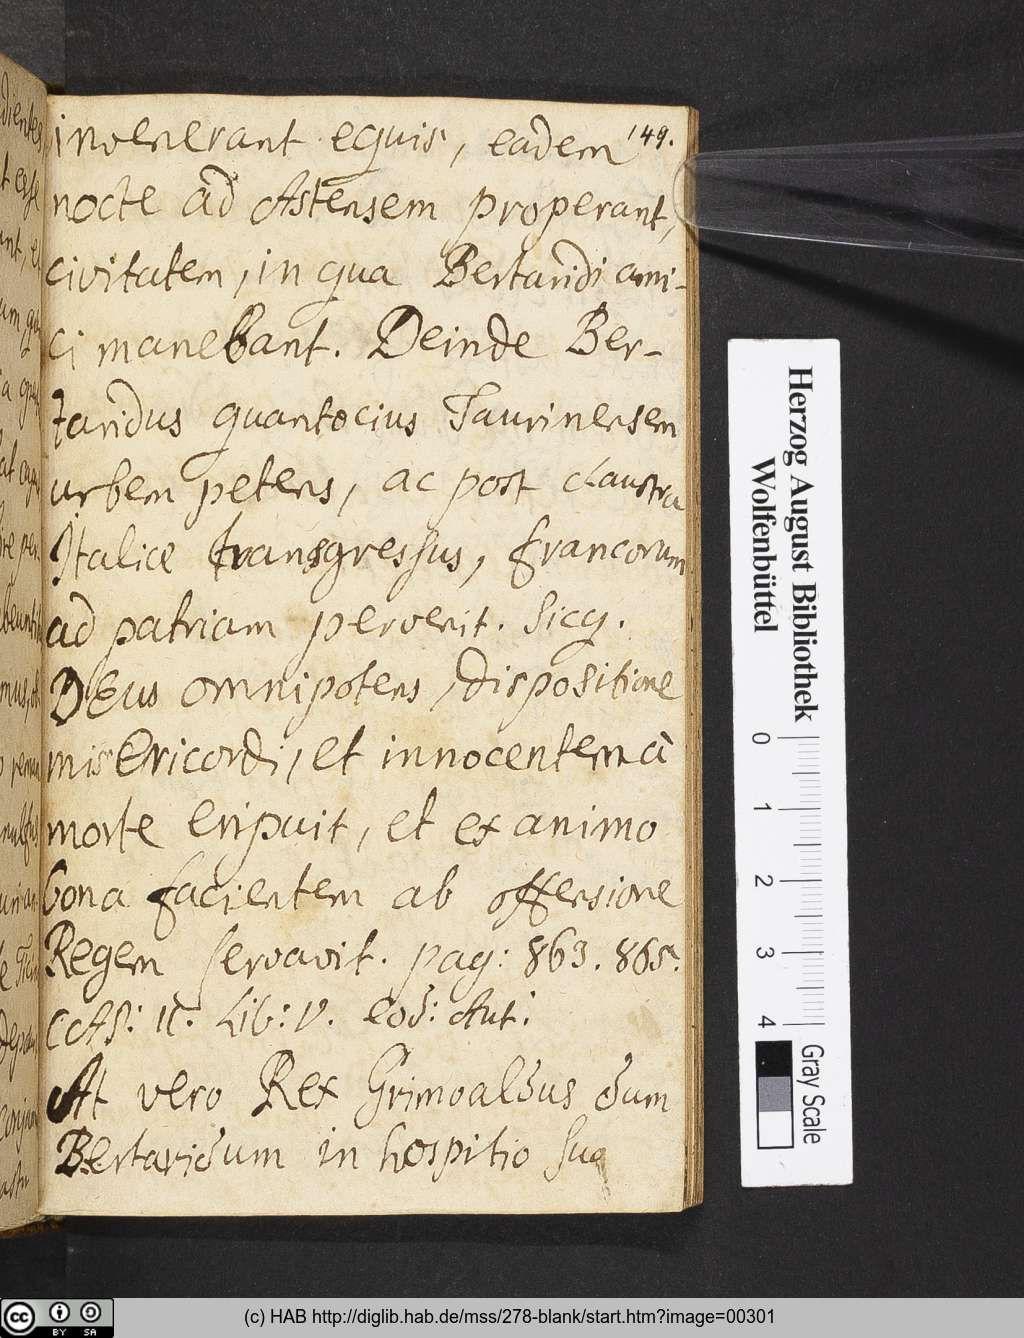 149.
invenerant equis, eadem
nocte ad Astensem properant,
civitatem, in qua Bertaridi ami-
ci manebant. Deinde Ber-
taridus quantocius Taurinensem
urbem petens, ac post claustra
Italiæ transgressus, francorum
ad patriam pervenit. Sicq.
DEus omnipotens, dispositione
misericordi, et innocentem à
morte eripuit, et ex animo
bona facientem ab offensione
Regem servavit. pag: 863. 865.
Lib: V. eod: Aut:
At vero Rex Grimoaldus dum
Bertaridum in hospitio suo
Herzog August Bibliothek
Wolfenbüttel
0 1 2 3 4
Gray Scale
cc BY SA
(c) HAB http://diglib.hab.de/mss/278-blank/start.htm?image=00301